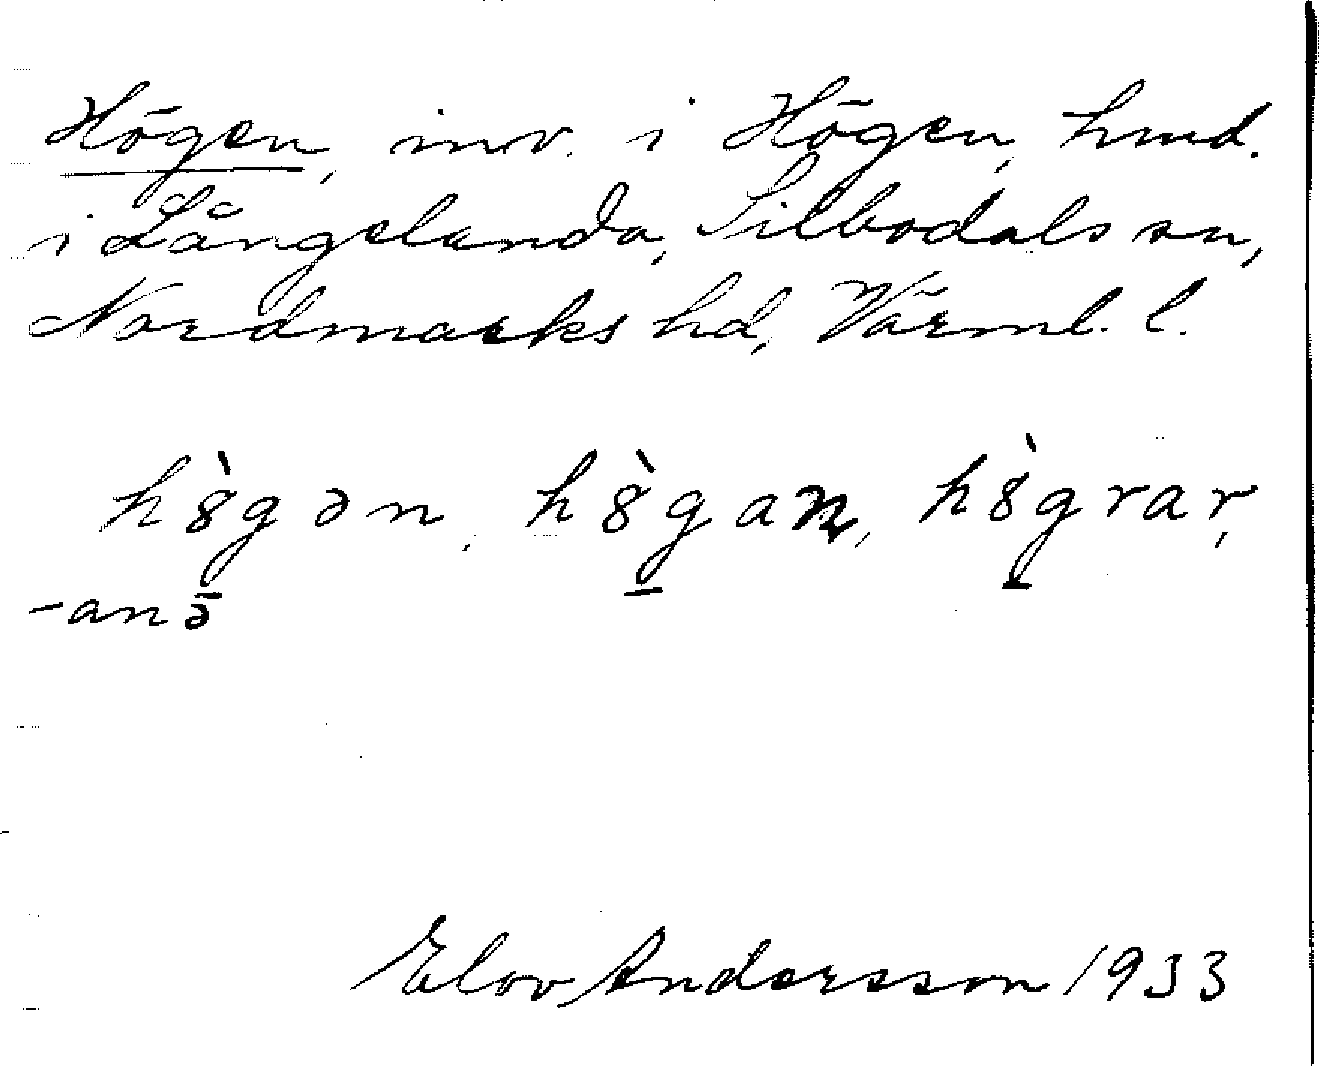 Högen, inv. i Högen, hmd.
i Långelanda, Silbodals sn,
Nordmarks hd, Värml. l.
h8̀gən, h8̀gan, h8̀grar,
-anə̄
Elov Andersson 1933